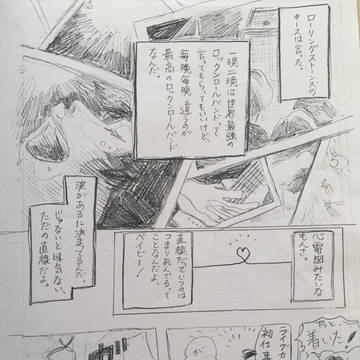 ローリングストーンズの
キースは言った。
一晩、二晩は世界最強の
ロックンロールバンドって
言ってもらってもいいけど、
毎晩毎晩違うのが
最高のロックンロールバンド
なんだ。
波があるに決まってるんだ。
じゃないと味気ない、
ただの直線だよ。
心電図みたいな
もんさ。
直線だっていうのは
つまり死んでるって
ことなんだよ、
ベイビー!
着いた!
ライブ
初仕事
が